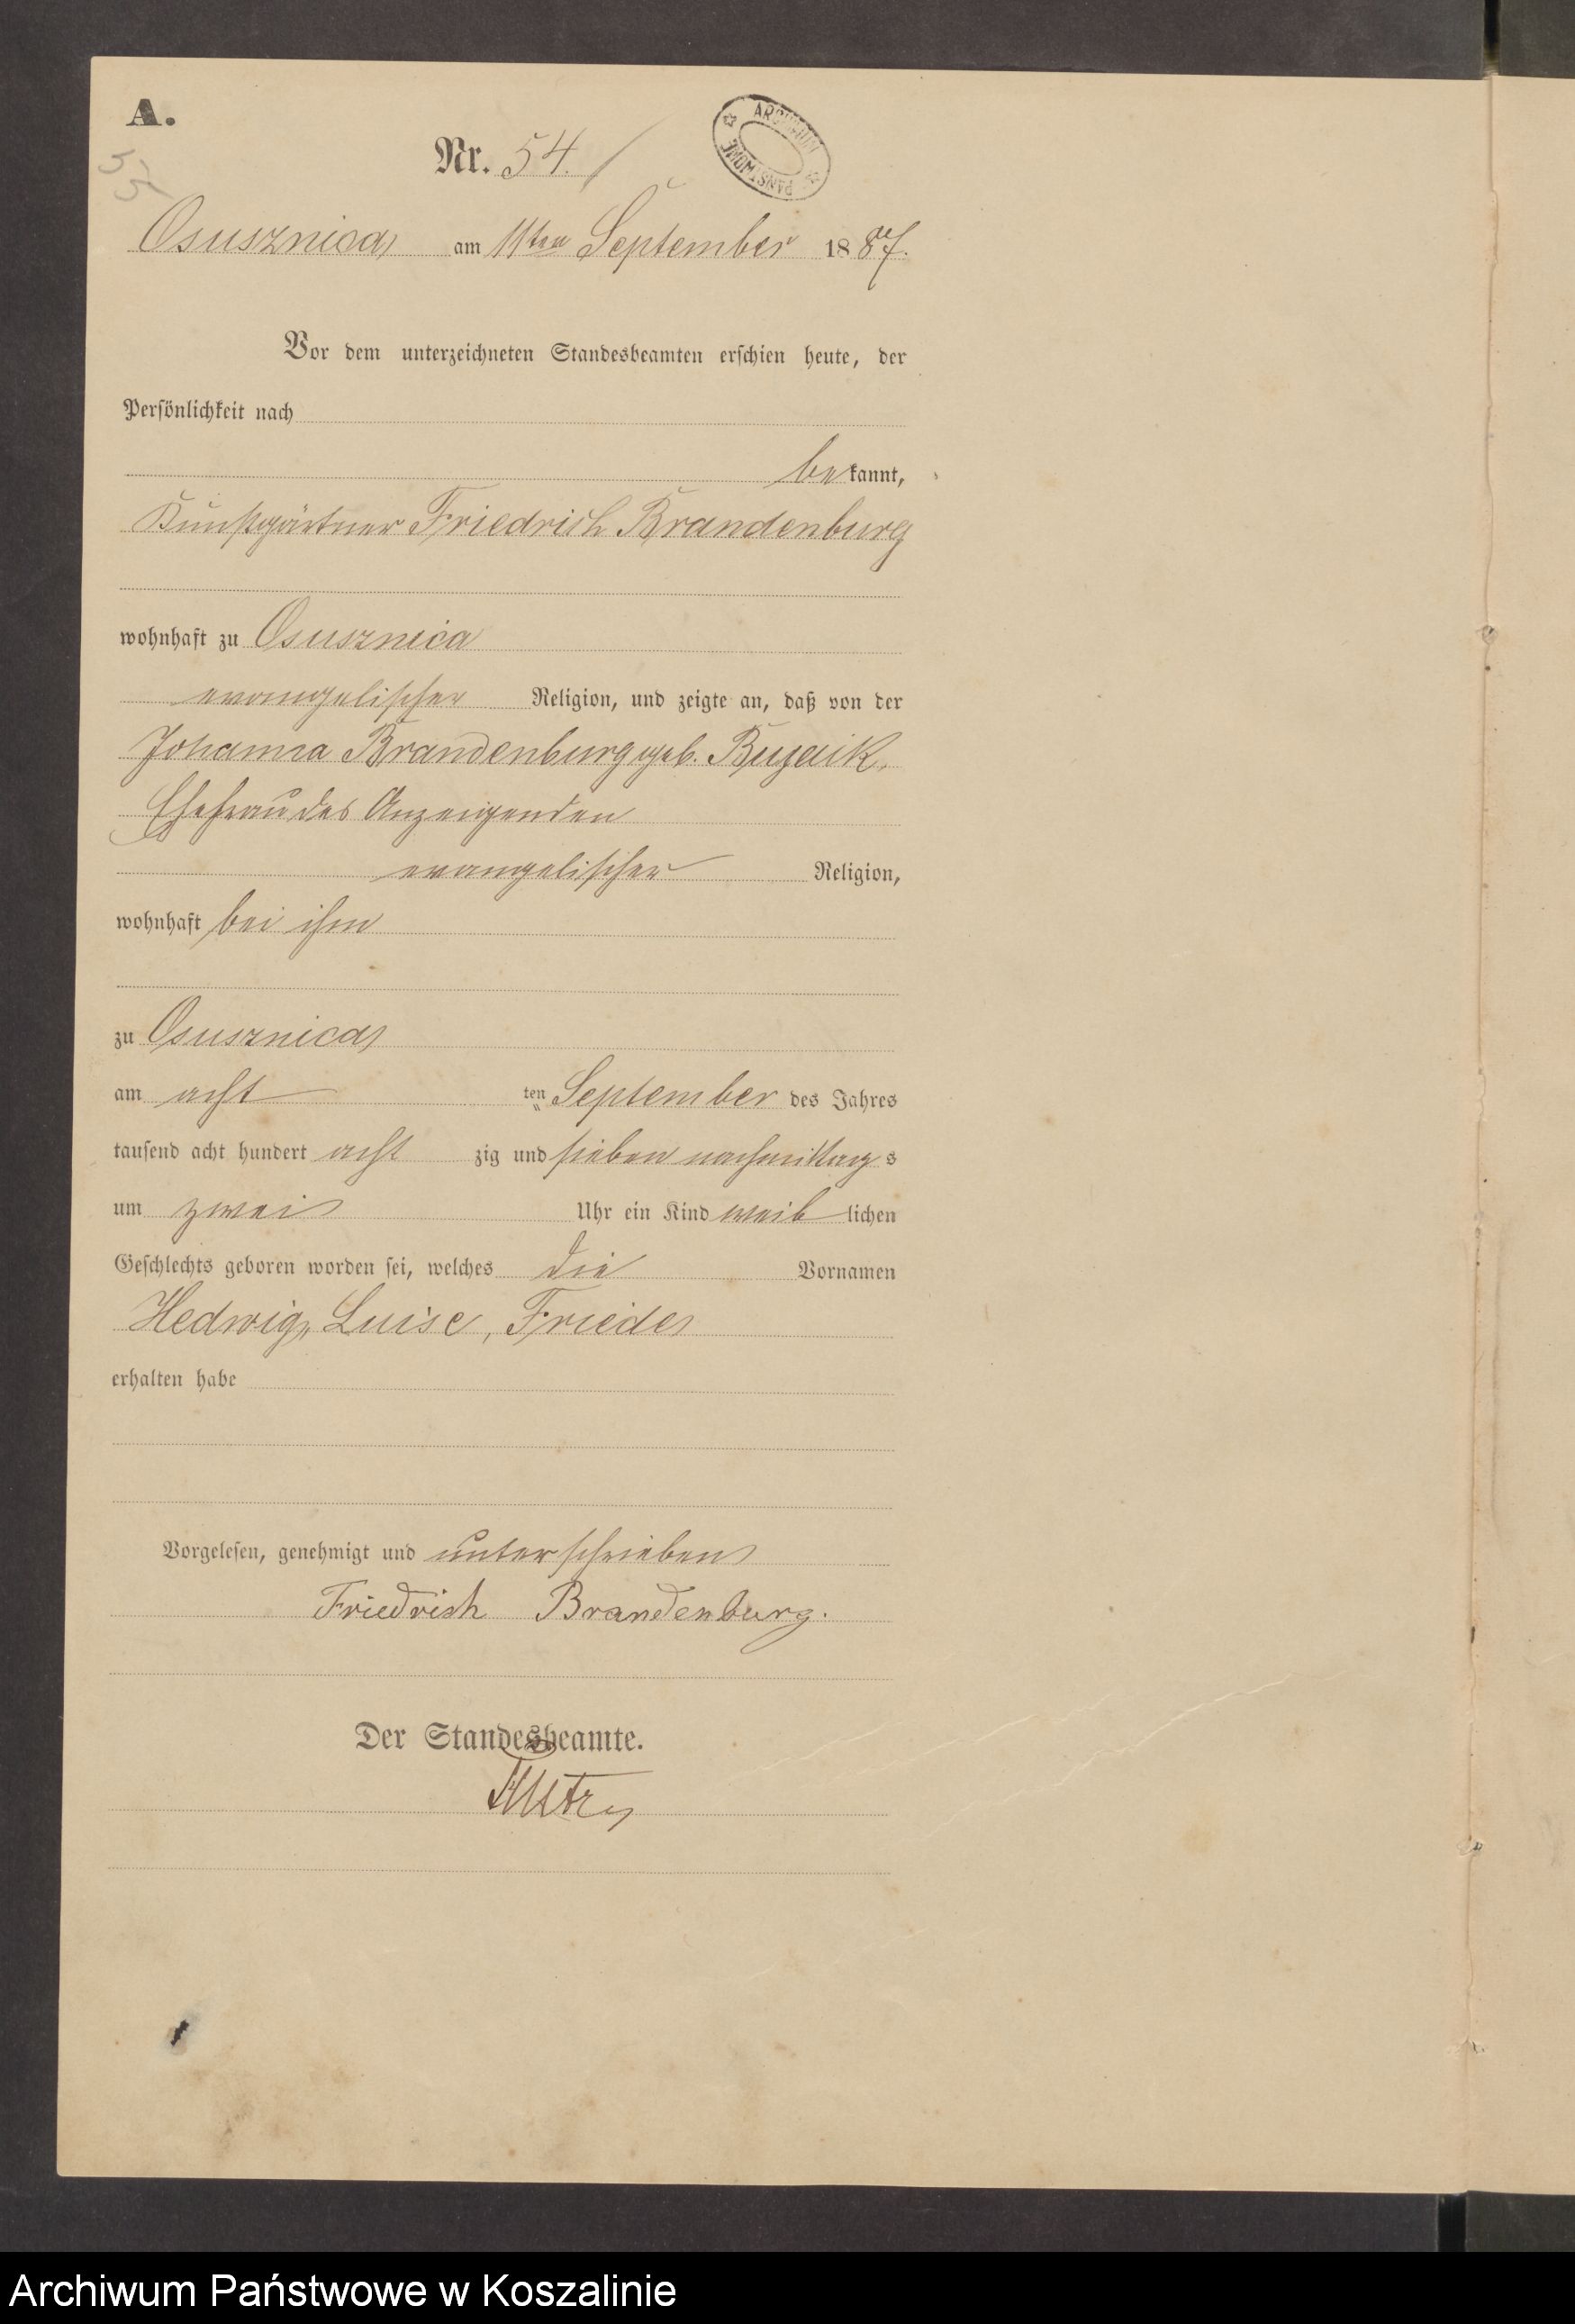 A.
55
Nr. 54.
ARCHIWUM PAŃSTWOWE
Osusznica am 11ten September 1887.
Vor dem unterzeichneten Standesbeamten erschien heute, der
Persönlichkeit nach
bekannt,
Kunstgärtner Friedrich Brandenburg
wohnhaft zu Osusznica
evangelischer Religion, und zeigte an, daß von der
Johanna Brandenburg geb.
Ehefrau des Anzeigenden
evangelischer Religion,
wohnhaft bei ihm
zu Osusznica
am acht ten September des Jahres
tausend acht hundert acht zig und sieben nachmittags
um zwei Uhr ein Kind weiblichen
Geschlechts geboren worden sei, welches die Vornamen
Hedwig, Luise, Friede
erhalten habe
Vorgelesen, genehmigt und unterschrieben
Friedrich Brandenburg.
Der Standesbeamte.
Archiwum Państwowe w Koszalinie